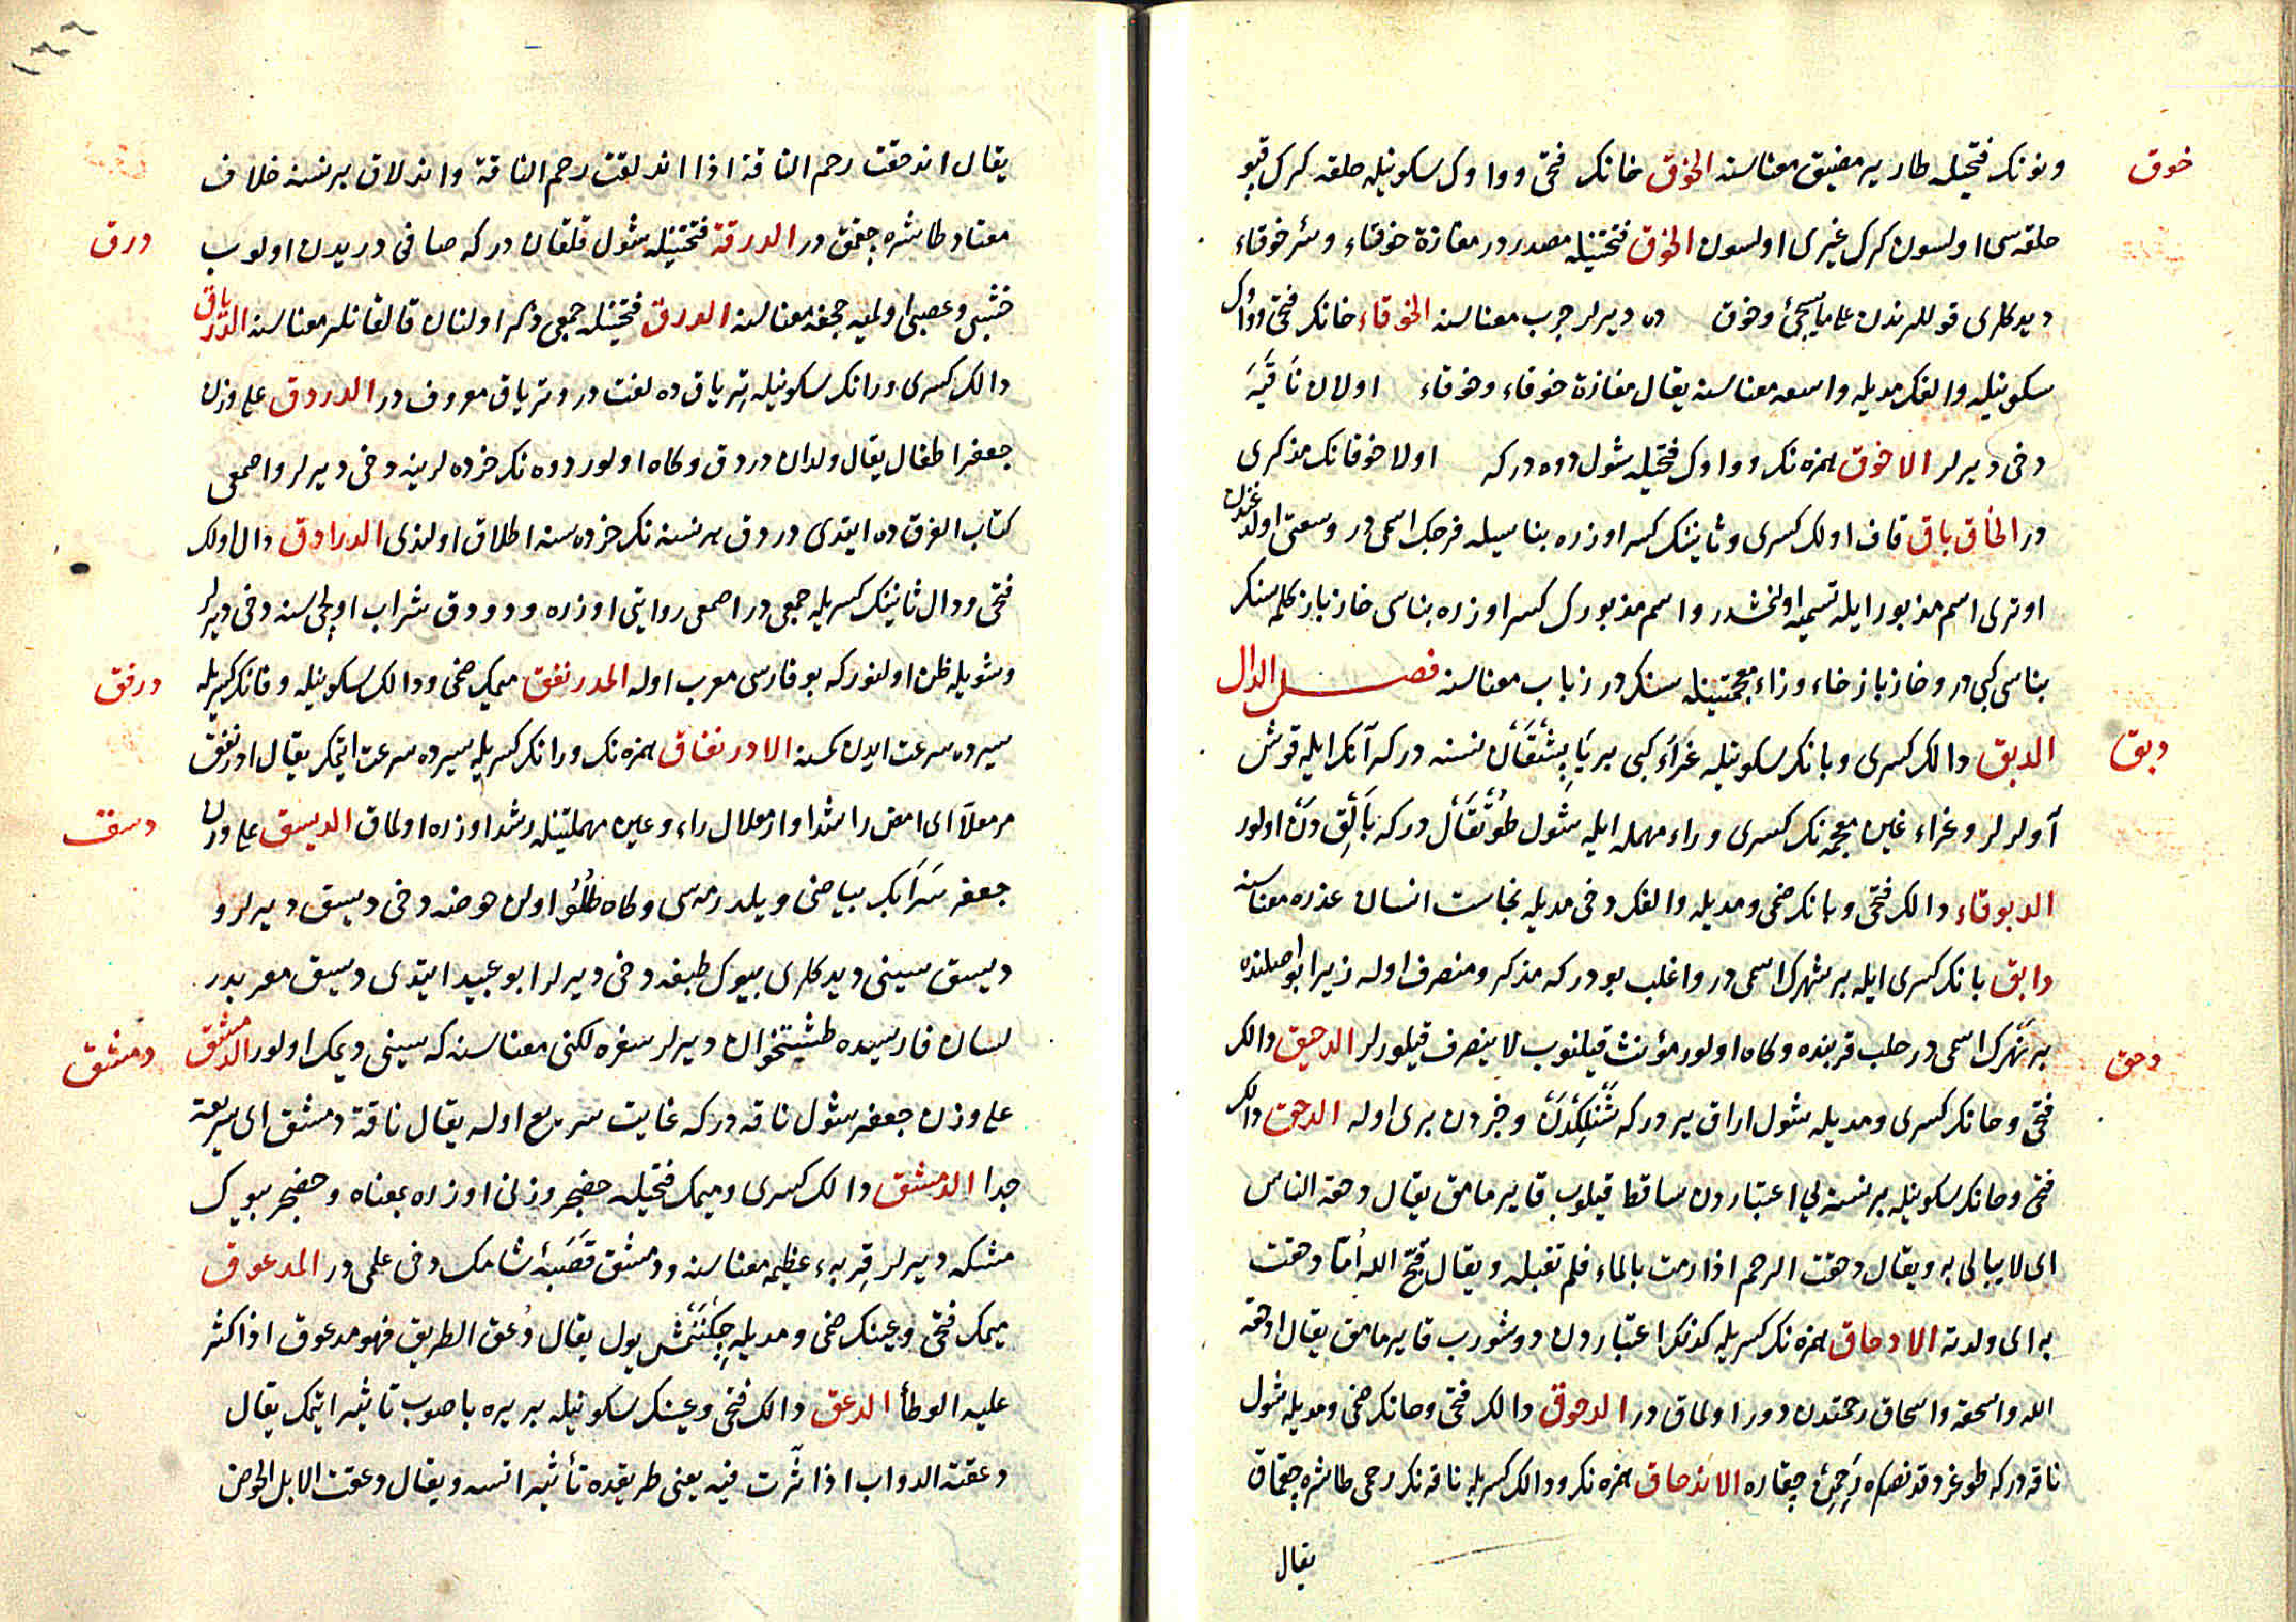 خوق
ونونك فتحيله طار ير مضيق معناسنه الخوق خانك فتحى وواوك سكونيله حلقه كرك قپو
حلقه سى اولسون كرك غيرى اولسون الخوق فتحتينله مصدر در مفازة خوقاء وبئر خوقاء
ديدكلرى قوللرندن على ما يجئ وخوق ده ديرلر جرب معناسنه الخوقاء خانك فتحى وواوك
سكونيله والفك مديله واسعه معناسنه يقال مفازة خوقاء وخوقاء اولان ناقيه
دخى ديرلر الاخوق همزه نك وواوك فتحيله شول دوه دركه اولا خوقانك مذكرى
در الخاق باق قاف اولك كسرى وثانينك كسر اوزره بناسيله فرجك اسمى در وسعتى اولدغندن
اوترى اسم مزبور ايله تسميه اولنمشدر واسم مزبورك كسر اوزره بناسى خاز باز كلمه سنك
بناسى كبى در وخاز باز خاء وزاء معجمتينله سنك در زباب معناسنه فصل الدال
دبق
الدبق دالك كسرى وبانك سكونيله غراء كبى بر ياپشقان نسنه دركه آنك ايله قوش
آولرلر وغراء غين معجمه نك كسرى وراء مهمله ايله شول طوتقال دركه بالقدن اولور
الدبوقاء دالك فتحى وبانك ضمى ومديله والفك دخى مديله نجاست انسان عذره معناسنه
دابق بانك كسرى ايله بر شهرك اسمى در واغلب بودركه مذكر ومنصرف اوله زيرا بو اصلنده
بر نهرك اسمى در حلب قربنده وكاه اولور مؤنث قيلنوب لا ينصرف قيلورلر الدحيق دالك
دحق
فتحى وحانك كسرى ومديله شول اراق ير دركه شنلكدن وخيردن برى اوله الدحق دالك
فتحى وحانك سكونيله بر نسنه يى اعتباردن ساقط قيلوب قايرمامق يقال دحقه الناس
اى لا يبالى به ويقال دحقت الرحم اذا رمت بالماء فلم تقبله ويقال قبح الله أمّا دحقت
به اى ولدته الادحاق همزه نك كسريله كذلك اعتباردن دوشورب قايرمامق يقال ادحقه
الله واسحقه واسحاق رحمتدن دور اولماق در الدحوق دالك فتحى وحانك ضمى ومديله شول
ناقه دركه طوغردقدنصكره رحمئ چقاره الاندحاق همزه نك ودالك كسريله ناقه نك رحمى طاشره چقماق
يقال
يقال اندحقت رحم الناقة اذا اندلقت رحم الناقة واندلاق بر نسنه خلاف
درق
معتاد طاشره چقمق در الدرقة فتحتينله شول قلقان دركه صافى دريدن اولوب
خشبى وعصبى اولميه جحفه معناسنه الدرق فتحتينله جمعى ذكر اولنان قالقانلر معناسنه الدرياق
دالك كسرى ورانك سكونيله ترياق ده لغت در وترياق معروف در الدردق على وزن
جعفر اطفال يقال ولدان دردق وكاه اولور دوه نك خرده لرينه دخى ديرلر واصمعى
كتاب الفرق ده ايتدى دردق هر نسنه نك خرده سنه اطلاق اولندى الدرادق دال اولك
فتحى ودال ثانينك كسريله جمعى در اصمعى روايتى اوزره ودودق شراب اولچى سنه دخى ديرلر
درفق
وشويله ظن اولنور كه بو فارسى معرب اوله المدرنفق ميمك ضمى ودالك سكونيله وفانك كسريله
سيرده سرعت ايدن كمسنه الادرنفاق همزه نك ورانك كسريله سيرده سرعت ايتمك يقال ادرنفق
دسق
مرمعلّا اى امض راشدا وارمعلال راء وعين مهملتينله رشد اوزره اولماق الديسق على وزن
جعفر سرابك بياضى ويلدرمسى وكاه طلو اولن حوضه دخى ديسق ديرلر و
ديسق سينى ديدكلرى بيوك طبغه دخى ديرلر ابو عبيد ايتدى ديسق معربدر
دمشق
لسان فارسيده طشتخوان ديرلر سفره لكنى معناسنه كه سينى ديمك اولور الدمشق
على وزن جعفر شول ناقه دركه غايت سريع اوله يقال ناقة دمشق اى سريعة
جدا الدمشق دالك كسرى وميمك فتحيله حضجر وزنى اوزره بمعناه وحضجر بيوك
مشكه ديرلر قربهء عظيمه معناسنه ودمشق قصبهٔ شامك دخى علمى در المدعوق
ميمك فتحى وعينك ضمى ومديله چكنمش يول يقال دُعق الطريق فهو مدعوق اذا كثر
عليه الوطأ الدعق دالك فتحى وعينك سكونيله بر يره باصوب تاثير ايتمك يقال
دعقته الدواب اذا اثّرت فيه يعنى طريقده تأثير اتسه ويقال دعقت الابل الحوض